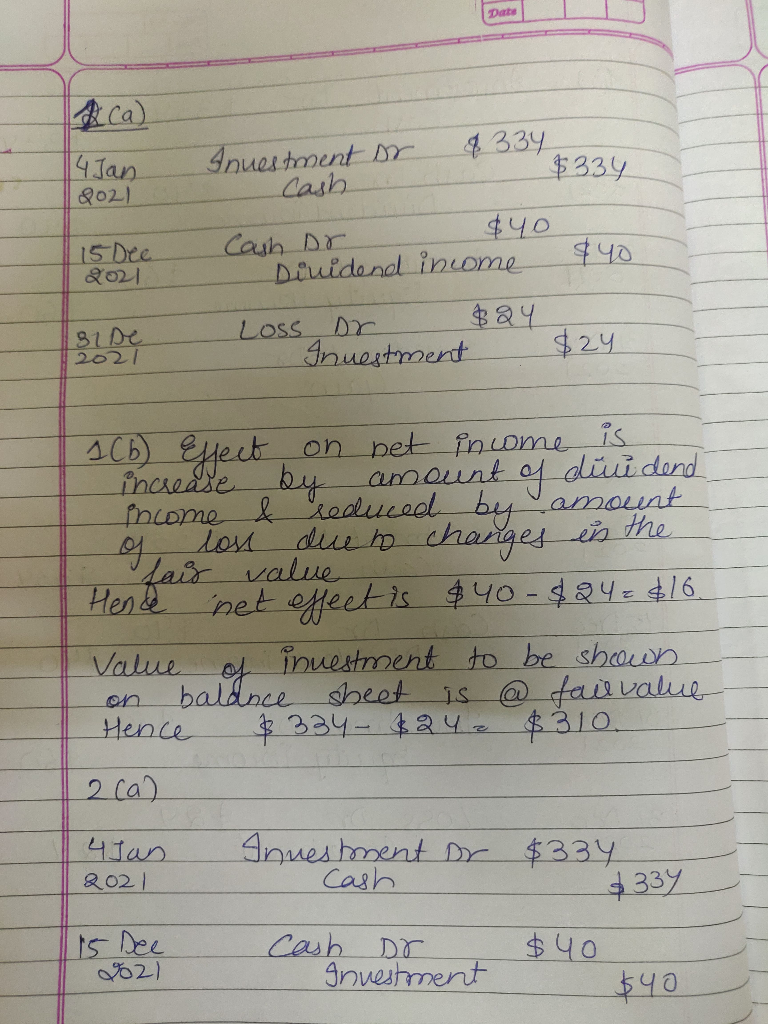 Date
1(a)
4 Jan Investment Dr $334
2021 Cash $334
15 Dec Cash Dr $40
2021 Dividend income $40
31 De Loss Dr $24
2021 Investment $24
1(b) Effect on net income is
increase by amount of dividend
income & reduced by amount
of loss due to changes in the
fair value
Hence net effect is $40 - $24 = $16.
Value of investment to be shown
on balance sheet is @ fair value
Hence $334 - $24 = $310.
2(a)
4 Jan Investment Dr $334
2021 Cash $334
15 Dec Cash Dr $40
2021 Investment $40